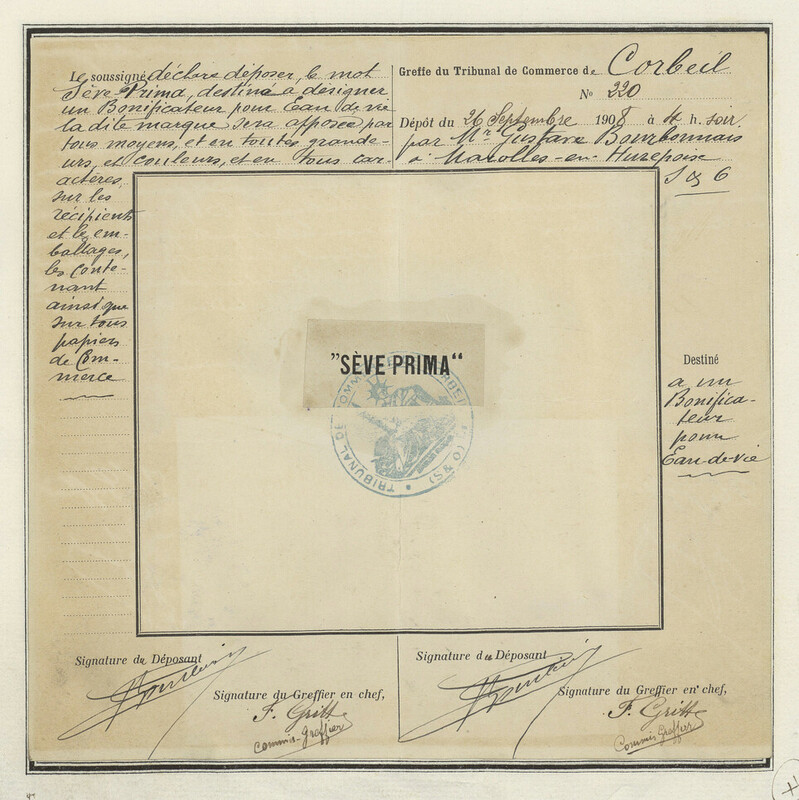 Le soussigné déclare déposer, le mot
Sève Prima, destiné à désigner
un Bonificateur pour Eau de vie
la dite marque sera apposée par
tous moyens, et en toutes grande-
urs, et couleurs, et en tous car-
actères,
sur les
récipients
et les em-
ballages,
les conte-
nant
ainsi que
sur tous
papiers
de Com-
merce
Greffe du Tribunal de Commerce de Corbeil
No 220
Dépôt du 26 Septembre 1908 à 4 h. soir
par Mr Gustave Bourbonnais
à Marolles-en-Hurepoise
S & 6
"SÈVE PRIMA"
TRIBUNAL DE COMMERCE DE CORBEIL (S & O)
Destiné
a un
Bonifica-
teur
pour
Eau-de-vie
Signature du Déposant
Signature du Greffier en chef,
F. Gritt
Commis-Greffier
Signature du Déposant
Signature du Greffier en chef,
F. Gritt
Commis Greffier